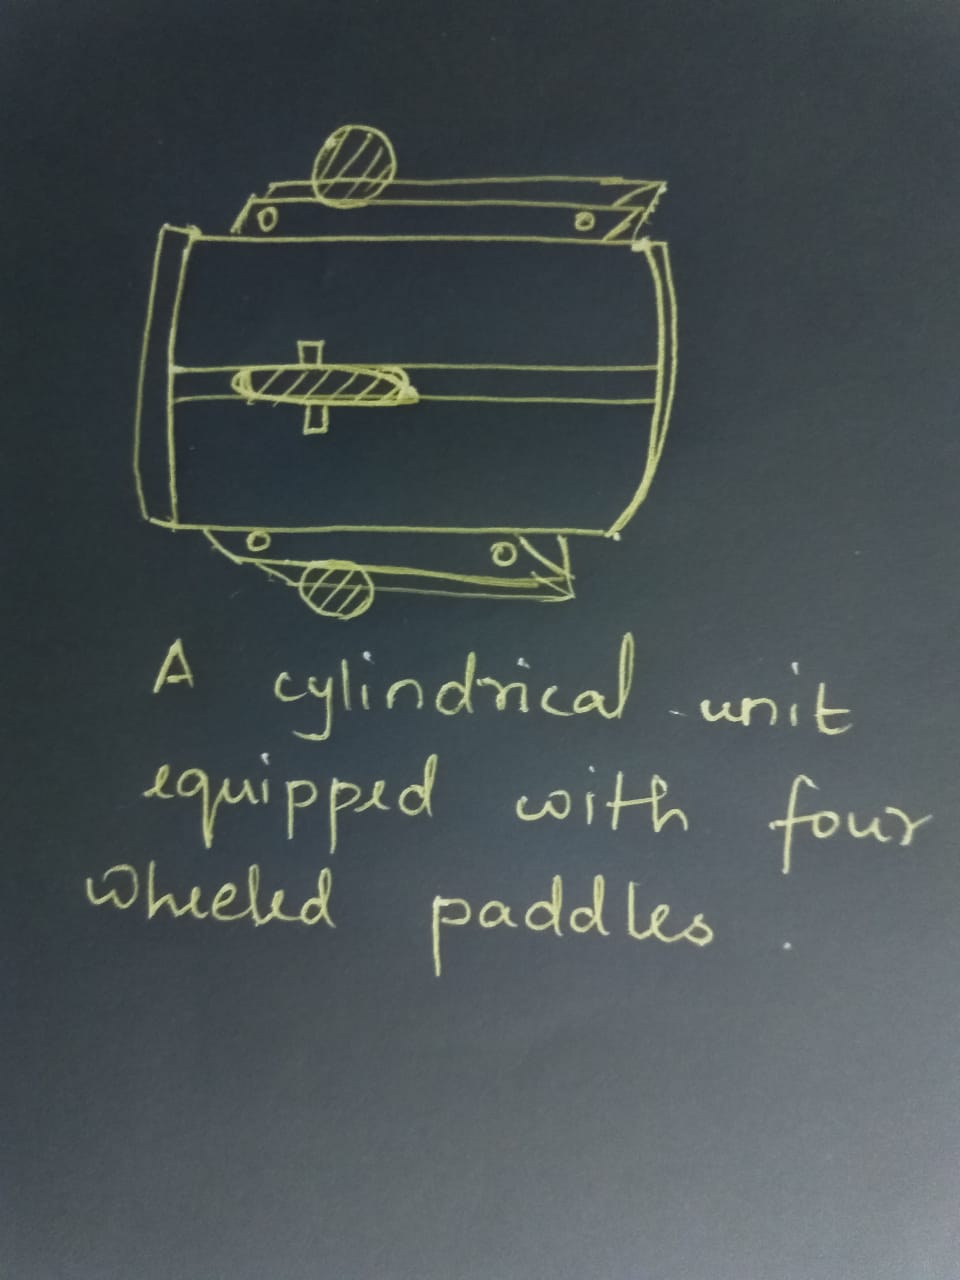 A cylindrical unit
equipped with four
wheeled paddles.